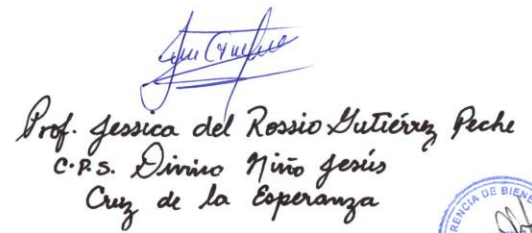 Prof. Jessica del Rossio Gutiérrez Peche
C.P.S. Divino Niño Jesús
Cruz de la Esperanza
RENCIA DE BIENE